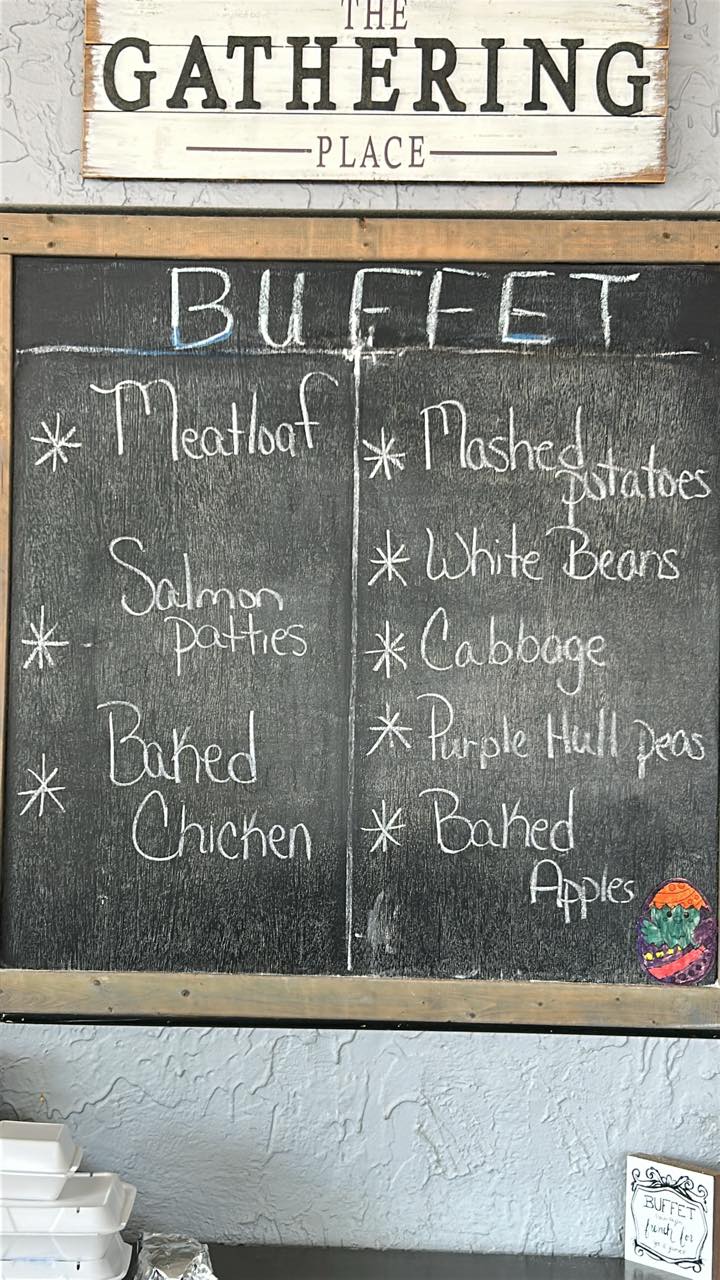 THE
GATHERING
PLACE
BUFFET
Meatloaf
Salmon
patties
Baked
Chicken
Mashed
potatoes
White Beans
Cabbage
Purple Hull peas
Baked
Apples
BUFFET
french for